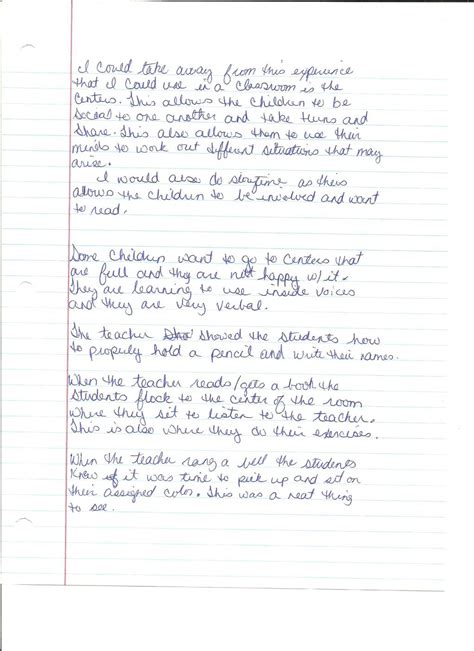 I could take away from this experience
that I could use in a classroom is the
centers. This allows the children to be
social to one another and take turns and
share. This also allows them to use their
minds to work out different situations that may
arise.
I would also do storytime as this
allows the children to be involved and want
to read.
Some children want to go to centers that
are full and they are not happy w/ it.
They are learning to use inside voices
and they are very verbal.
The teacher showed the students how
to properly hold a pencil and write their names.
When the teacher reads/gets a book the
students flock to the center of the room
where they sit to listen to the teacher.
This is also where they do their exercises.
When the teacher rang a bell the students
knew if it was time to pick up and sit on
their assigned color. This was a neat thing
to see.